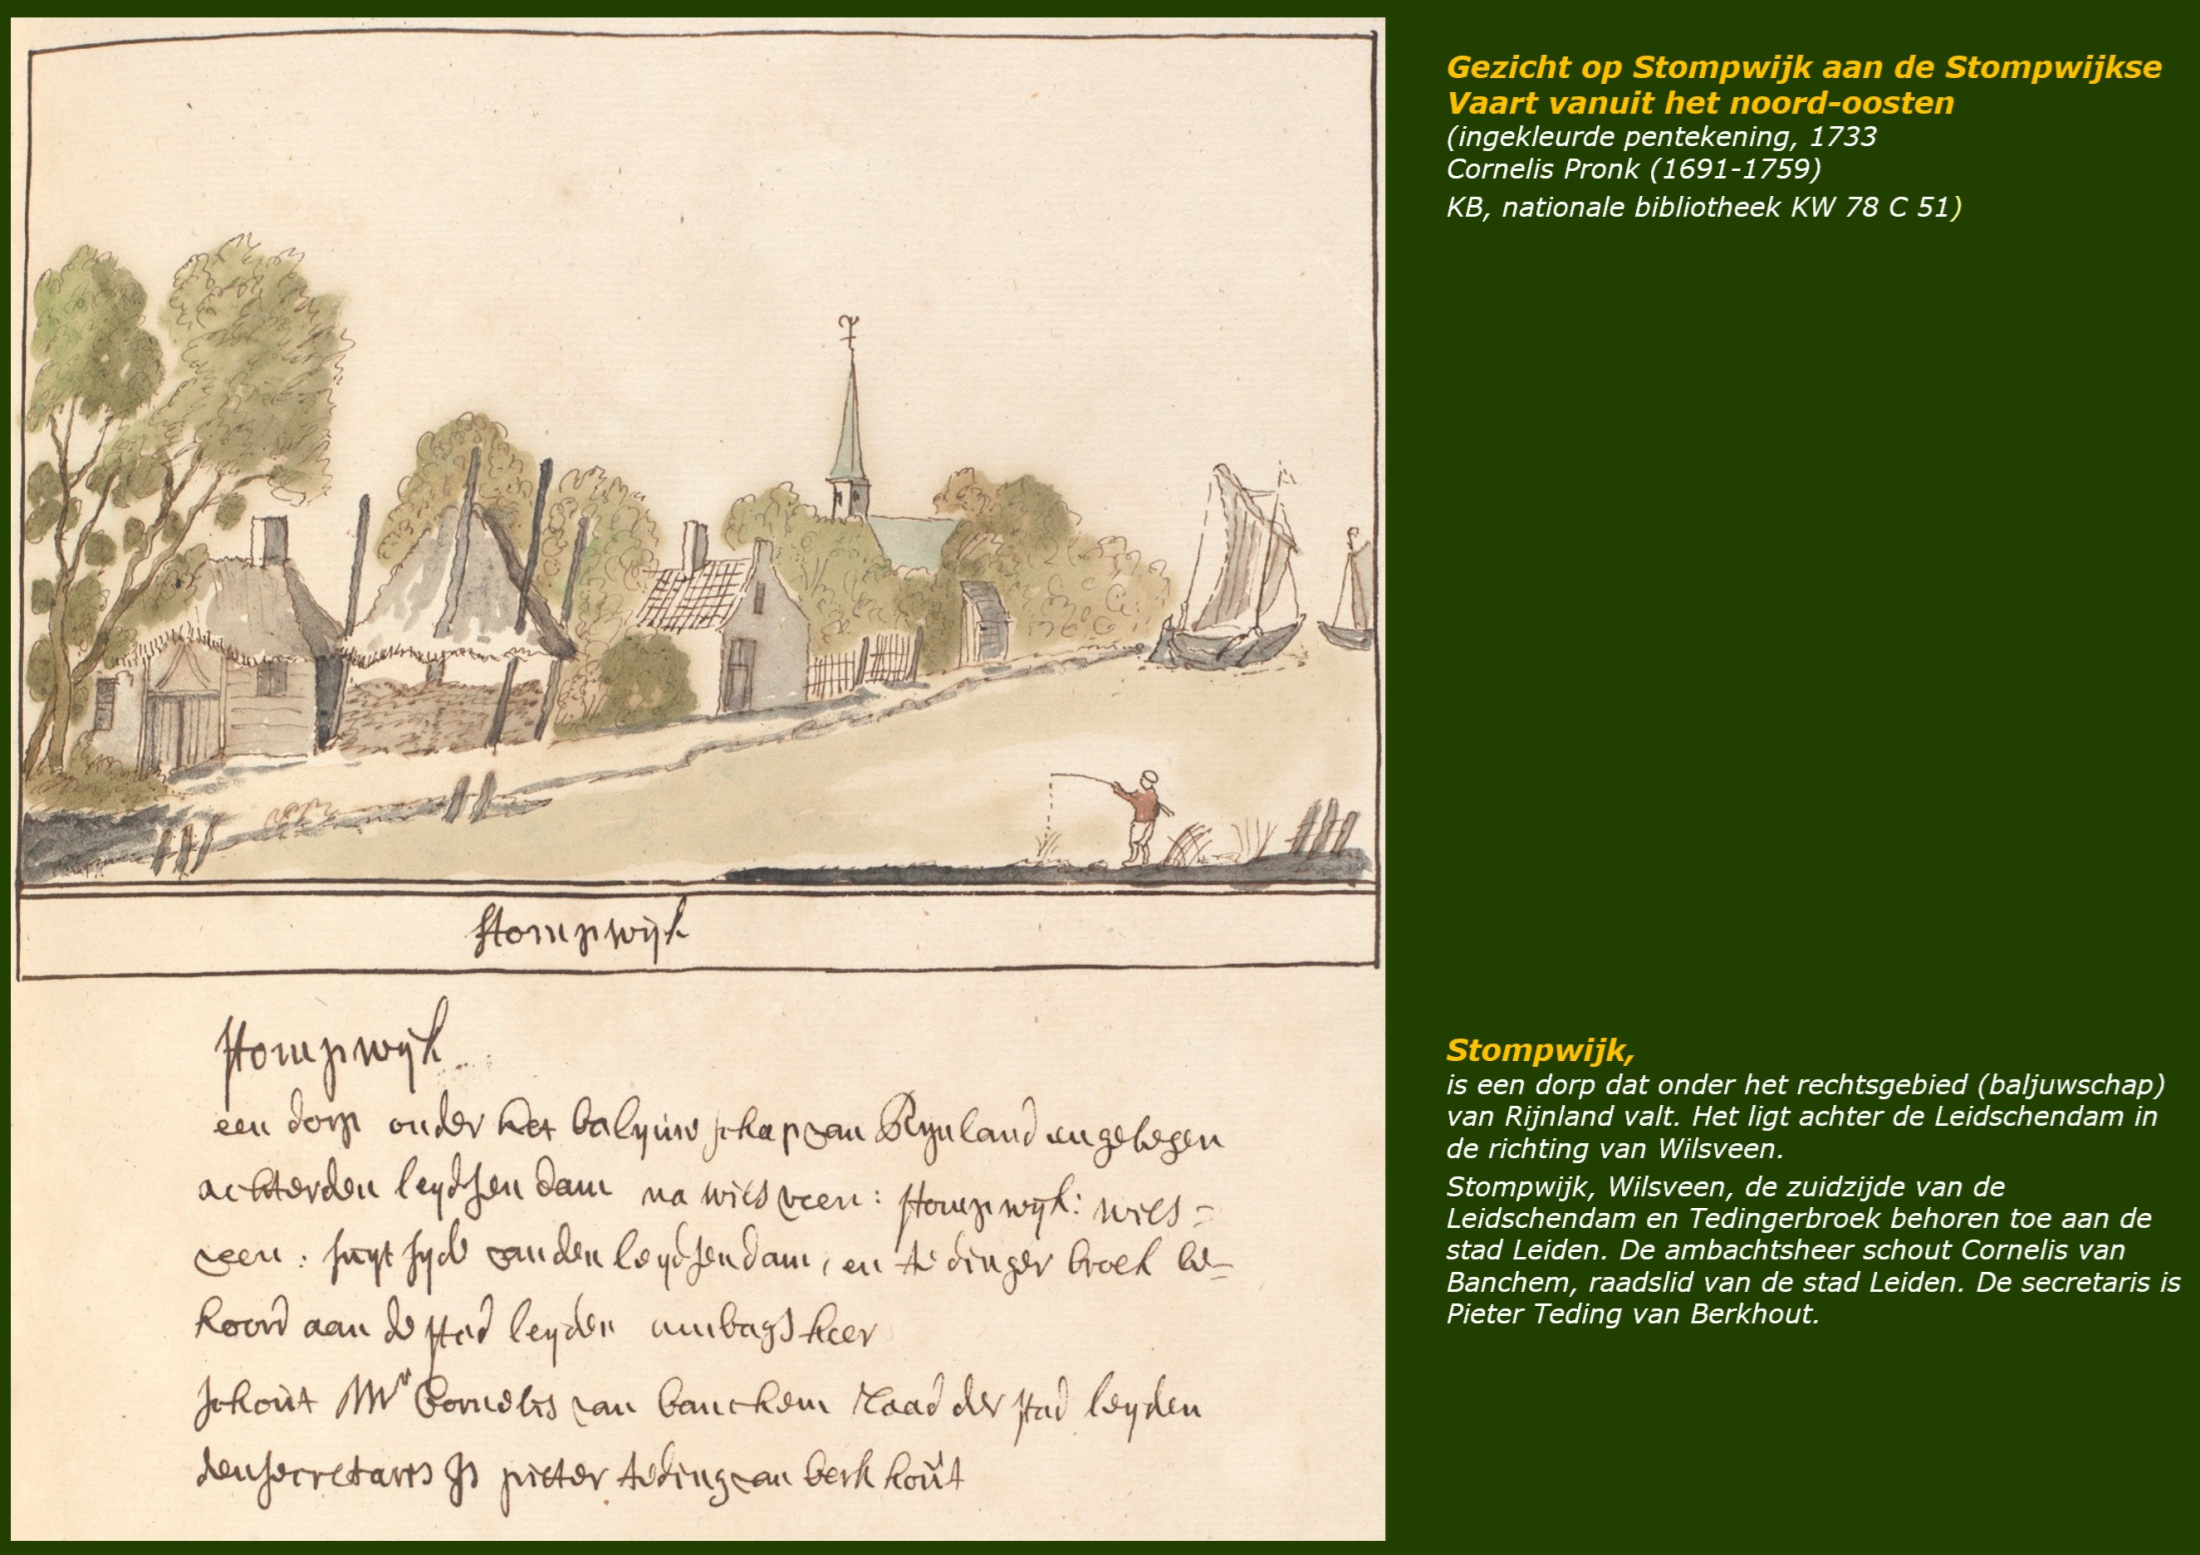 Stompwijk
Stompwijk
een dorp onder het baljuw schap van Rijnland en gelegen
achter den leijdsen dam na wils veen: Stompwijk: wils=
veen: suijt sijde van den leijdsendam, en tedinger broek be=
hoord aan de stad leijden ambags heer
schout Mr Cornelis van banchem raad der stad leijden
den secretaris Is pieter teding van berk hoút
Gezicht op Stompwijk aan de Stompwijkse
Vaart vanuit het noord-oosten
(ingekleurde pentekening, 1733
Cornelis Pronk (1691-1759)
KB, nationale bibliotheek KW 78 C 51)
Stompwijk,
is een dorp dat onder het rechtsgebied (baljuwschap)
van Rijnland valt. Het ligt achter de Leidschendam in
de richting van Wilsveen.
Stompwijk, Wilsveen, de zuidzijde van de
Leidschendam en Tedingerbroek behoren toe aan de
stad Leiden. De ambachtsheer schout Cornelis van
Banchem, raadslid van de stad Leiden. De secretaris is
Pieter Teding van Berkhout.